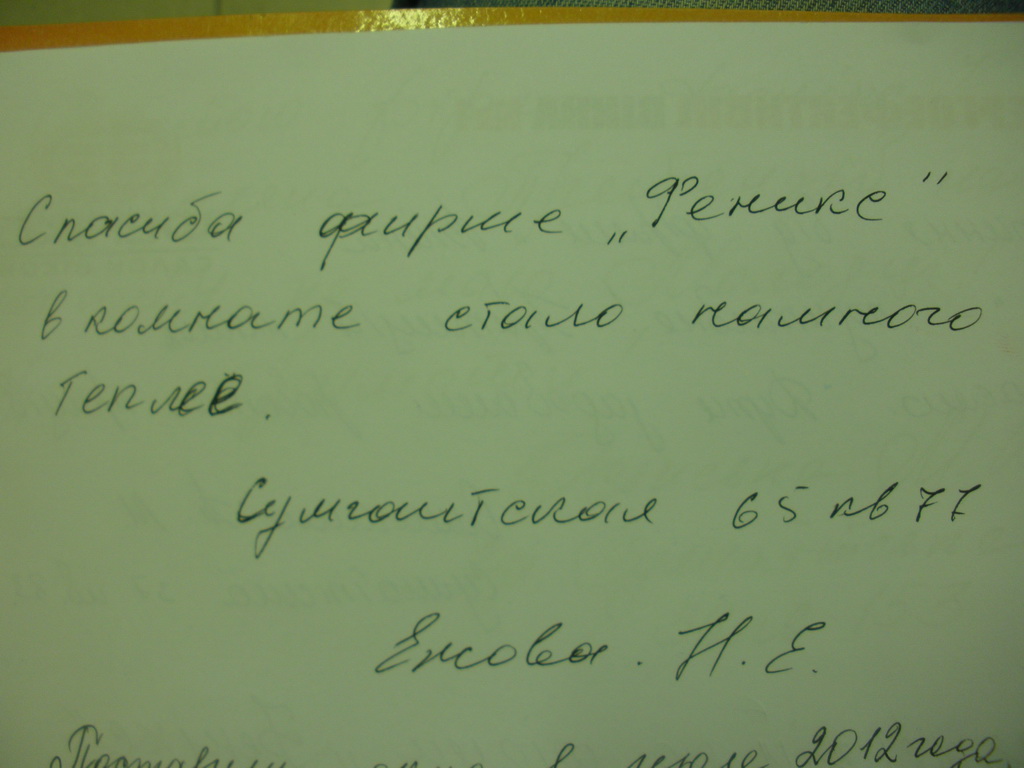 Спасиба фирме „Феникс"
в комнате стало намного
теплее.
Сумгаитская 65 кв 77
Ежова. Н. Е.
Поставили окна в июле 2012 года.